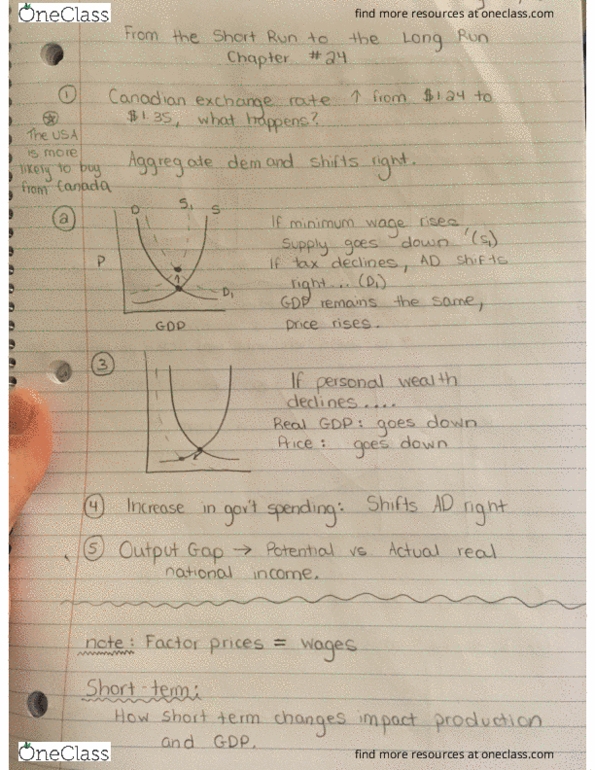 OneClass
find more resources at oneclass.com
From the Short Run to the Long Run
Chapter #24
① Canadian exchange rate ↑ from $1.24 to
$1.35, what happens?
The USA
is more
likely to buy
from Canada
Aggregate demand shifts right.
② D S₁ S
P
D₁
GDP
If minimum wage rises
Supply goes "down" (S₁)
If tax declines, AD shifts
right... (D₁)
GDP remains the same,
price rises.
③
If personal wealth
declines....
Real GDP: goes down
Price: goes down
④ Increase in gov't spending: Shifts AD right
⑤ Output Gap → Potential vs Actual real
national income.
note: Factor prices = wages
Short-term:
How short term changes impact production
and GDP.
OneClass
find more resources at oneclass.com